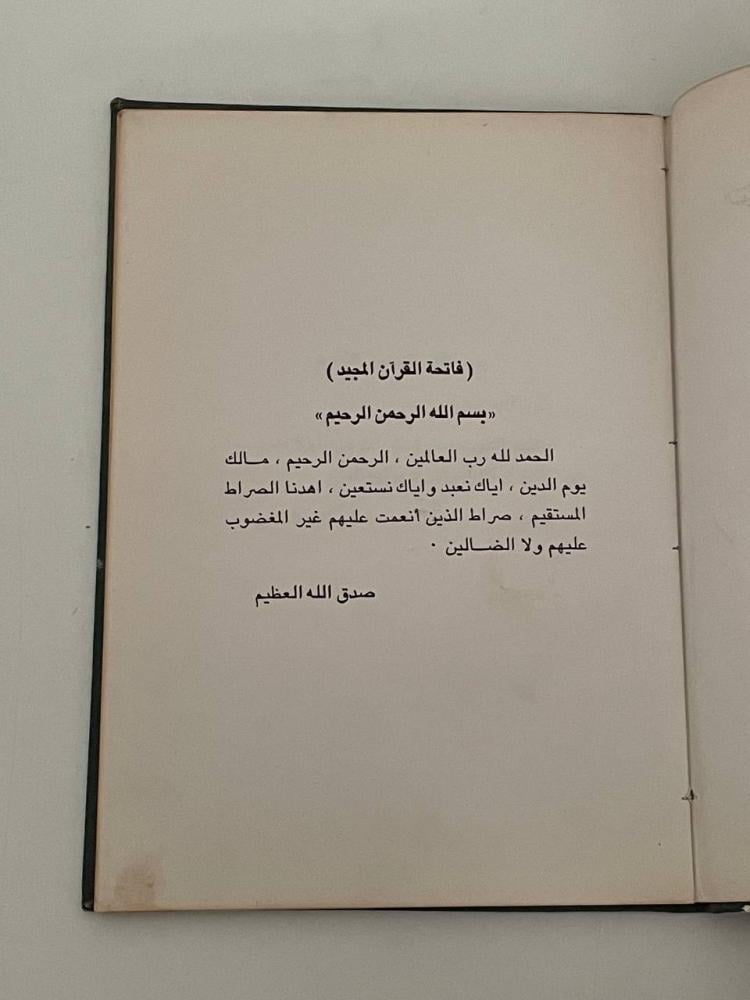 (فاتحة القرآن المجيد)
«بسم الله الرحمن الرحيم»
الحمد لله رب العالمين ، الرحمن الرحيم ، مـالك
يوم الدين ، اياك نعبد واياك نستعين ، اهدنا الصراط
المستقيم ، صراط الذين أنعمت عليهم غير المغضوب
عليهم ولا الضـالين ٠
صدق الله العظيم